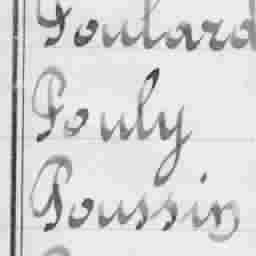 Poulard
Pouly
Poussin